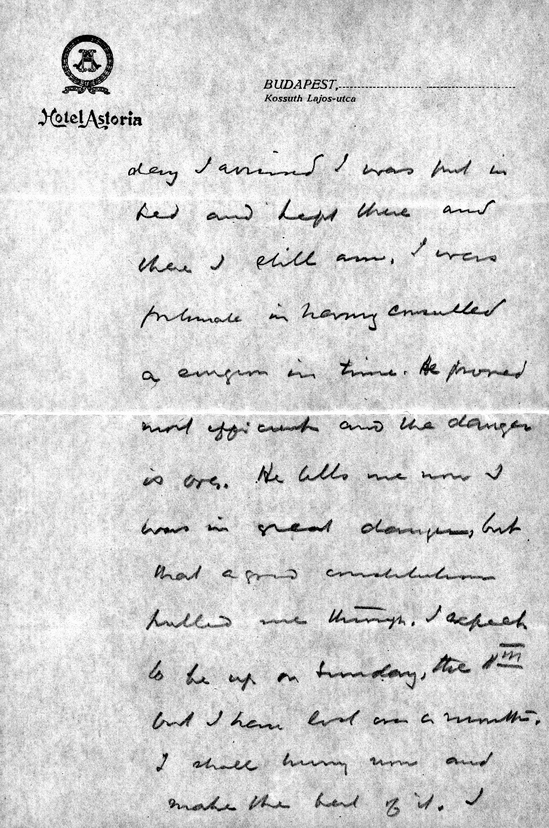 Hotel Astoria
BUDAPEST,
Kossuth Lajos-utca
day I arrived I was put in
bed and kept there and
there I still am. I was
fortunate in having consulled
a surgeon in time. He proved
most efficient and the danger
is over. He tells me now I
was in great danger, but
that a good constitution
pulled me through. I expect
to be up on Sunday, the
but I have lost over a month.
I shall hurry now and
make the best of it. I